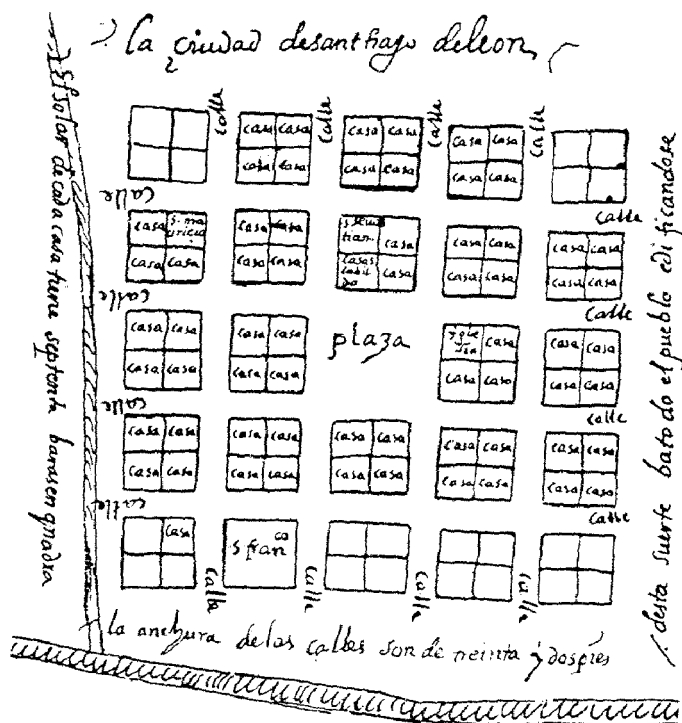 la ciudad de santhago de leon
El solar de cada casa tiene septenta baras en quadra
desta suerte ba todo el pueblo edificandose
calle calle calle calle
casa casa casa casa casa casa
casa casa casa casa casa casa
calle
calle
casa s. ma casa casa s. seuas casa casa casa casa
uricio tian casa casa
casa casa casa casa casas casa casa casa casa casa
cabil
do
calle
calle
casa casa casa casa plaza ygle casa casa casa
sia
casa casa casa casa casa casa casa casa
calle
calle
casa casa casa casa casa casa casa casa casa casa
casa casa casa casa casa casa casa casa casa casa
calle
calle
casa s fran co
calle calle calle calle
la anchura de las calles son de treinta y dos pies